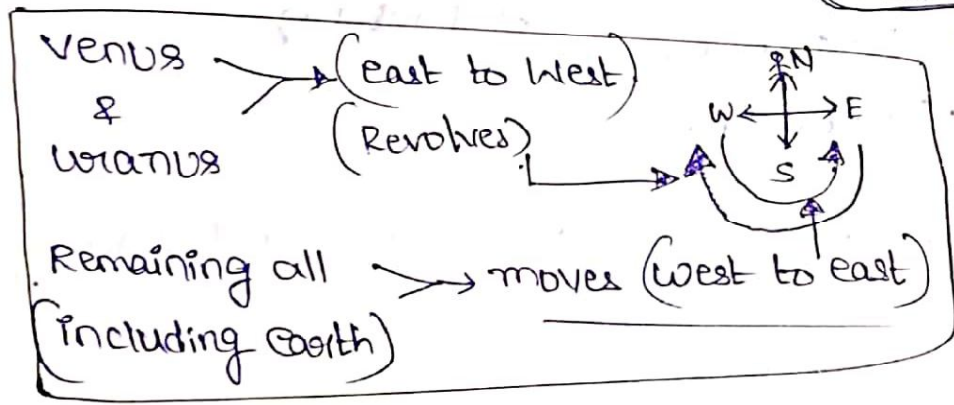 Venus
&
Uranus
(east to West)
(Revolves)
N
W E
S
Remaining all
(including earth)
moves (west to east)